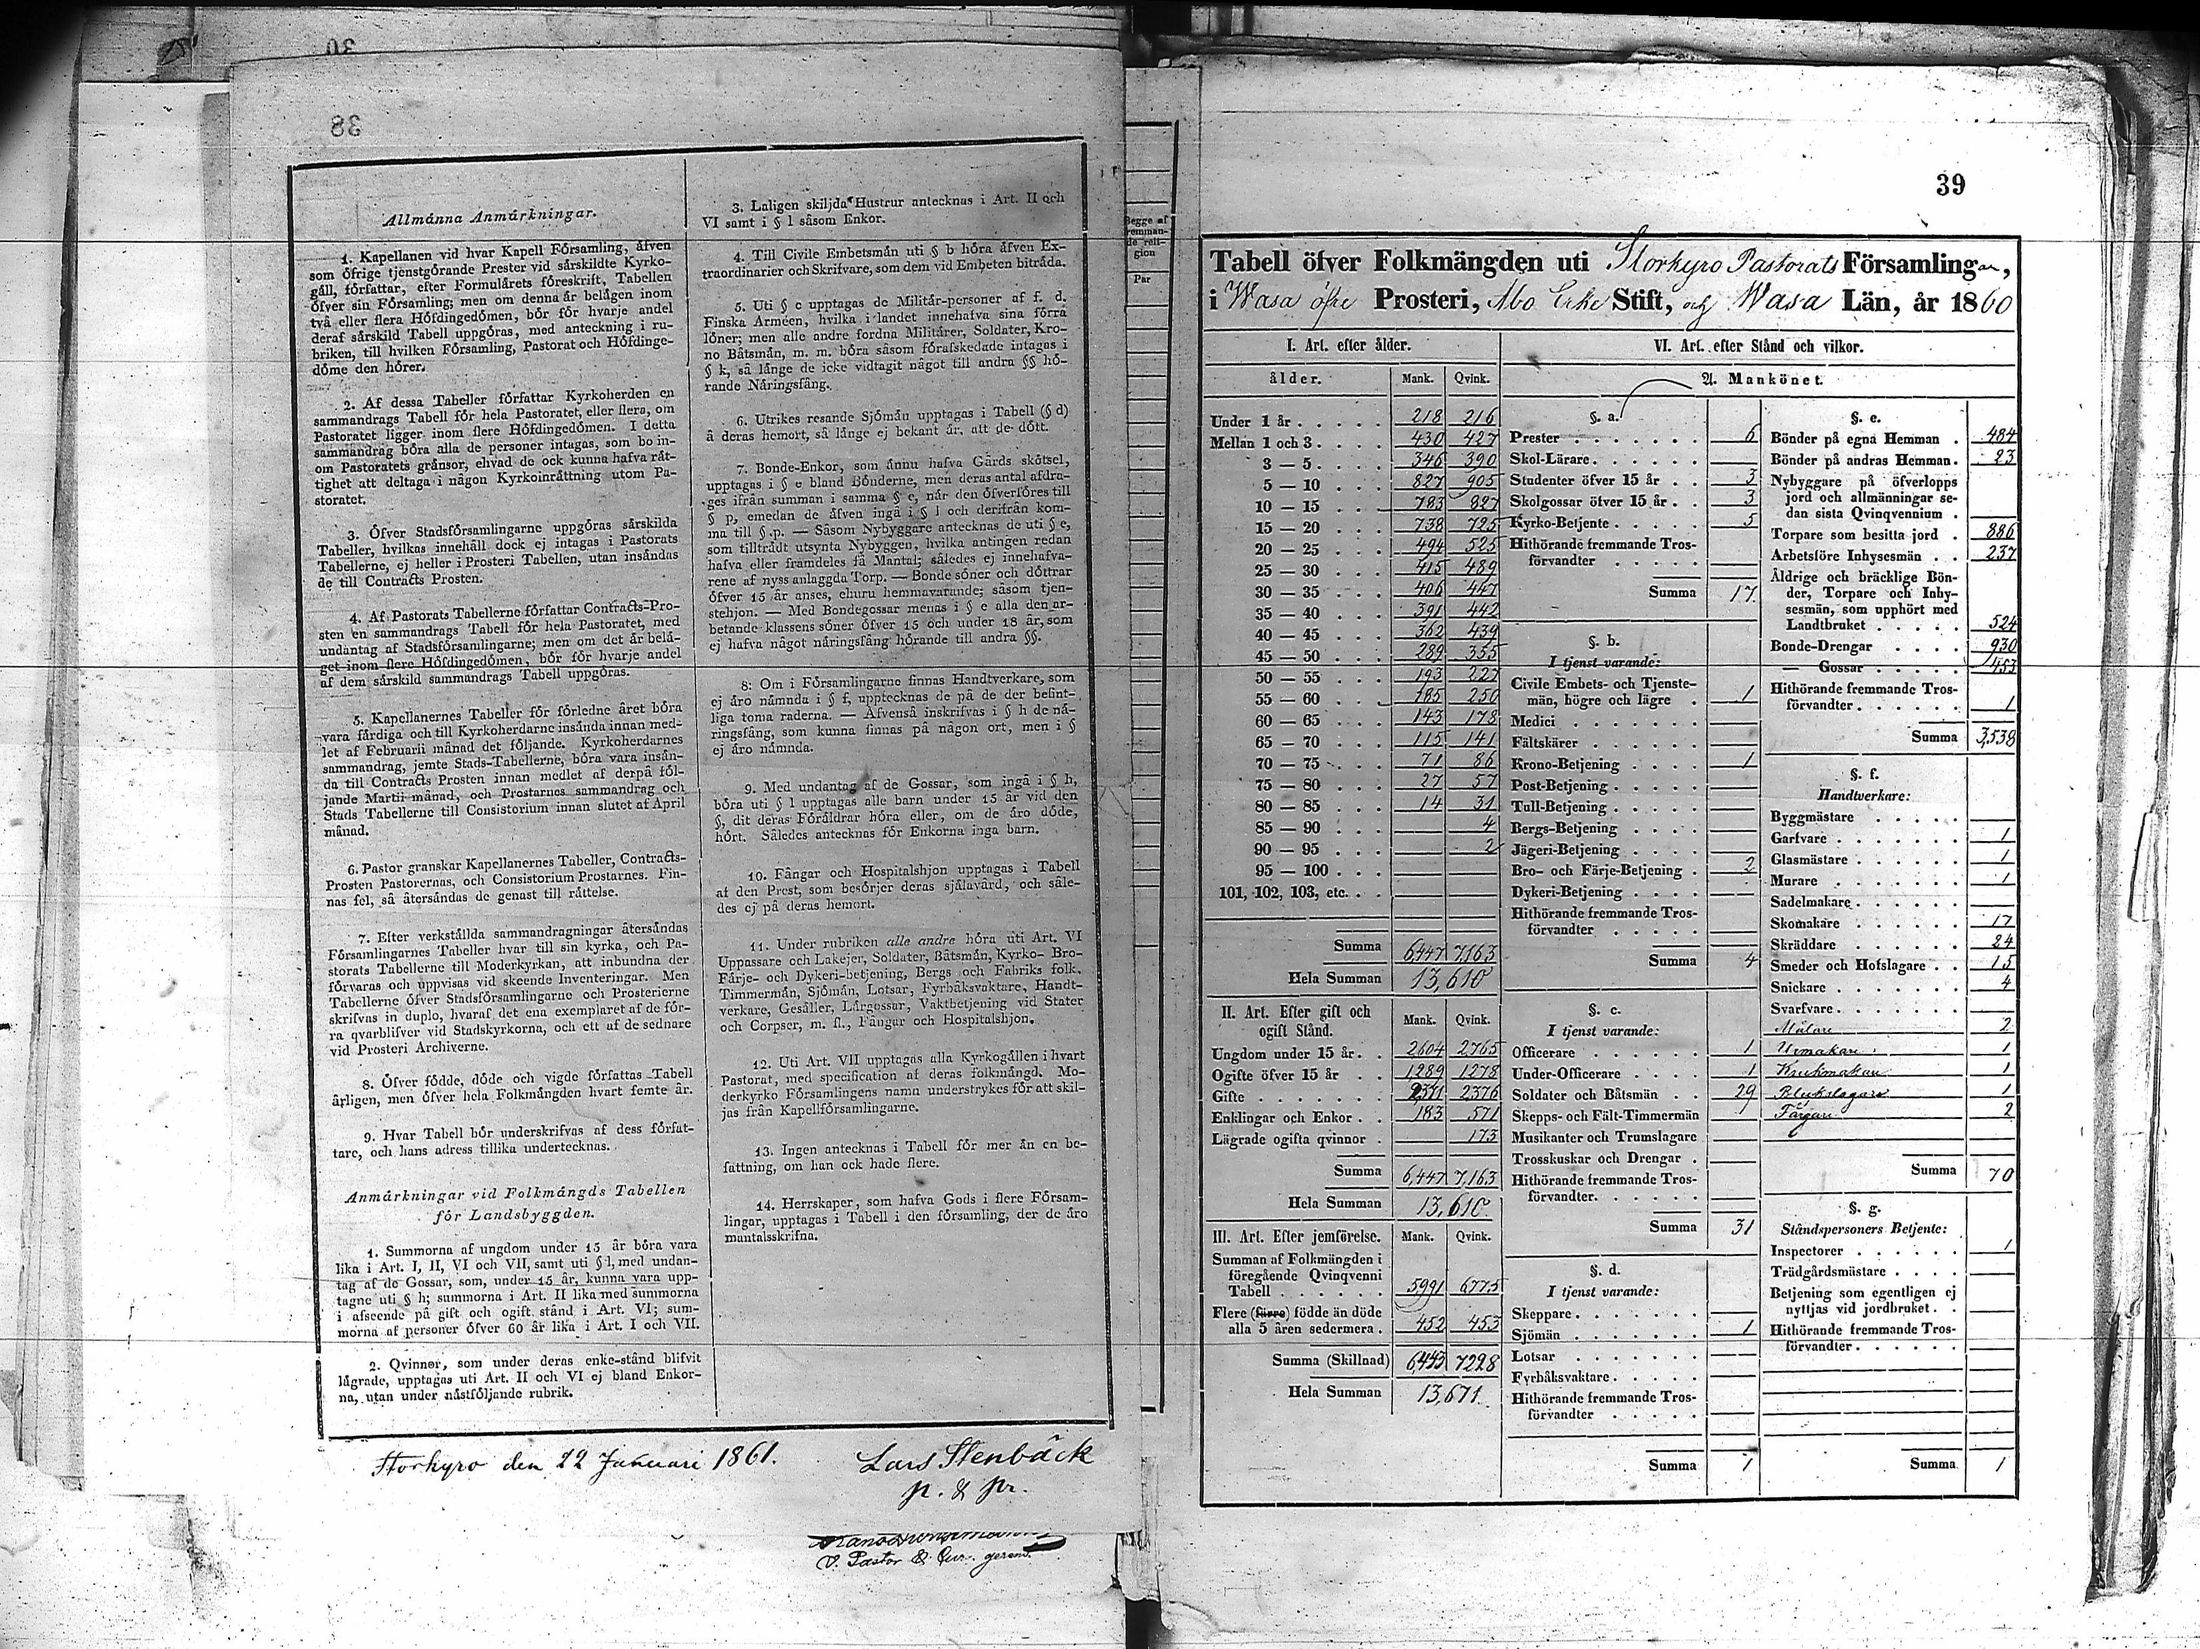 38
Allmänna Anmärkningar.
1. Kapellanen vid hvar Kapell Församling, åfven
som öfrige tjenstgörande Prester vid särskildte Kyrko-
gåll, författar, efter Formulårets föreskrift, Tabellen
öfver sin Församling; men om denna är belågen inom
två eller flera Höfdingedömen, bör för hvarje andel
deraf särskild Tabell uppgöras, med anteckning i ru-
briken, till hvilken Församling, Pastorat och Höfdinge-
döme den hörer.
2. Af dessa Tabeller författar Kyrkoherden en
sammandrags Tabell för hela Pastoratet, eller flera, om
Pastoratet ligger inom flere Höfdingedömen. I detta
sammandrag böra alla de personer intagas, som bo in-
om Pastoratets gränsor, ehvad de ock kunna hafva rät-
tighet att deltaga i någon Kyrkoinråttning utom Pa-
storatet.
3. Öfver Stadsförsamlingarne uppgöras särskilda
Tabeller, hvilkas innehåll dock ej intagas i Pastorats
Tabellerne, ej heller i Prosteri Tabellen, utan insåndas
de till Contracts Prosten.
4. Af Pastorats Tabellerne författar Contracts-Pro-
sten en sammandrags Tabell för hela Pastoratet, med
undantag af Stadsförsamlingarne; men om det är belå-
get inom flere Höfdingedömen, bör för hvarje andel
af dem särskild sammandrags Tabell uppgöras.
5. Kapellanernes Tabeller för förledne året böra
vara färdiga och till Kyrkoherdarne insånda innan med-
let af Februarii månad det följande. Kyrkoherdarnes
sammandrag, jemte Stads-Tabellerne, böra vara insån-
da till Contracts Prosten innan medlet af derpå föl-
jande Martii månad, och Prostarnes sammandrag och
Stads Tabellerne till Consistorium innan slutet af April
månad.
6. Pastor granskar Kapellanernes Tabeller, Contracts-
Prosten Pastorernas, och Consistorium Prostarnes. Fin-
nas fel, så återsändas de genast till råttelse.
7. Efter verkställda sammandragningar återsändas
Församlingarnes Tabeller hvar till sin kyrka, och Pa-
storats Tabellerne till Moderkyrkan, att inbundna der
förvaras och uppvisas vid skeende Inventeringar. Men
Tabellerne öfver Stadsförsamlingarne och Prosterierne
skrifvas in duplo, hvaraf det ena exemplaret af de för-
ra qvarblifver vid Stadskyrkorna, och ett af de sednare
vid Prosteri Archiverne.
8. Öfver födde, döde och vigde författas Tabell
årligen, men öfver hela Folkmängden hvart femte år.
9. Hvar Tabell bör underskrifvas af dess förfat-
tare, och hans adress tillika undertecknas.
Anmärkningar vid Folkmängds Tabellen
för Landsbyggden.
1. Summorna af ungdom under 15 år böra vara
lika i Art. I, II, VI och VII, samt uti § l, med undan-
tag af de Gossar, som, under 15 år, kunna vara upp-
tagne uti § h; summorna i Art. II lika med summorna
i afseende på gift och ogift stånd i Art. VI; sum-
morna af personer öfver 60 år lika i Art. I och VII.
2. Qvinnor, som under deras enke-stånd blifvit
lågrade, upptagas uti Art. II och VI ej bland Enkor-
na, utan under nåstföljande rubrik.
3. Laligen skiljda Hustrur antecknas i Art. II och
VI samt i § l såsom Enkor.
4. Till Civile Embetsmån uti § b höra åfven Ex-
traordinarier och Skrifvare, som dem vid Embeten bitråda.
5. Uti § c upptagas de Militår-personer af f. d.
Finska Armeen, hvilka i landet innehafva sina förra
löner; men alle andre fordna Militårer, Soldater, Kro-
no Båtsmån, m. m. böra såsom förafskedade intagas i
§ k, så långe de icke vidtagit något till andra §§ hö-
rande Näringsfång.
6. Utrikes resande Sjömån upptagas i Tabell (§ d)
å deras hemort, så långe ej bekant är, att de dött.
7. Bonde-Enkor, som ännu hafva Gårds skötsel,
upptagas i § e bland Bönderne, men deras antal afdra-
ges ifrån summan i samma § e, når den öfverföres till
§ p, emedan de åfven ingå i § l och derifrån kom-
ma till § p. — Såsom Nybyggare antecknas de uti § e,
som tilltrådt utsynta Nybyggen, hvilka antingen redan
hafva eller framdeles få Mantal; således ej innehafva-
rene af nyss anlaggda Torp. — Bonde söner och döttrar
öfver 15 år anses, ehuru hemmavarande, såsom tjen-
stehjon. — Med Bondegossar menas i § e alla den ar-
betande klassens söner öfver 15 och under 18 år, som
ej hafva något näringsfång hörande till andra §§.
8: Om i Församlingarne finnas Handtverkare, som
ej äro nämnda i § f, upptecknas de på de der befint-
liga toma raderna. — Åfvenså inskrifvas i § h de nå-
ringsfång, som kunna finnas på någon ort, men i §
ej äro nämnda.
9. Med undantag af de Gossar, som ingå i § h,
böra uti § l upptagas alle barn under 15 år vid den
§, dit deras Föråldrar höra eller, om de äro döde,
hört. Således antecknas för Enkorna inga barn.
10. Fångar och Hospitalshjon upptagas i Tabell
af den Prest, som besörjer deras själavård, och såle-
des ej på deras hemort.
11. Under rubriken alle andre höra uti Art. VI
Uppassare och Lakejer, Soldater, Båtsmån, Kyrko- Bro-
Färje- och Dykeri-betjening, Bergs och Fabriks folk,
Timmermån, Sjömån, Lotsar, Fyrbåksvaktare, Handt-
verkare, Gesåller, Lårgossar, Vaktbetjening vid Stater
och Corpser, m. fl., Fångar och Hospitalshjon.
12. Uti Art. VII upptagas alla Kyrkogällen i hvart
Pastorat, med specification af deras folkmängd. Mo-
derkyrko Församlingens namn understrykes för att skil-
jas från Kapellförsamlingarne.
13. Ingen antecknas i Tabell för mer ån en be-
fattning, om han ock hade flere.
14. Herrskaper, som hafva Gods i flere Försam-
lingar, upptagas i Tabell i den församling, der de äro
mantalsskrifna.
Storkyro den 22 Januari 1861.
Lars Stenbäck
p. & pr.
V. Pastor & Cur. gerens.
Begge af
fremman-
de reli-
gion
Par
39
Tabell öfver Folkmängden uti Storkyro Pastorats Församlingar,
i Wasa öfre Prosteri, Åbo Erke Stift, och Wasa Län, år 1860
I. Art. efter ålder.
ålder. Mank. Qvink.
Under 1 år 218 216
Mellan 1 och 3 430 427
3 — 5 346 390
5 — 10 827 905
10 — 15 783 827
15 — 20 738 725
20 — 25 494 525
25 — 30 415 489
30 — 35 406 447
35 — 40 391 442
40 — 45 362 439
45 — 50 289 355
50 — 55 193 227
55 — 60 185 250
60 — 65 143 178
65 — 70 115 141
70 — 75 71 86
75 — 80 27 57
80 — 85 14 31
85 — 90 4
90 — 95 2
95 — 100
101, 102, 103, etc.
Summa 6,447 7,163
Hela Summan 13,610
II. Art. Efter gift och
ogift Stånd. Mank. Qvink.
Ungdom under 15 år 2604 2765
Ogifte öfver 15 år 1289 1278
Gifte 2371 2376
Enklingar och Enkor 183 571
Lägrade ogifta qvinnor 173
Summa 6,447 7,163
Hela Summan 13,610
III. Art. Efter jemförelse. Mank. Qvink.
Summan af Folkmängden i
föregående Qvinqvenni
Tabell 5,991 6,775
Flere (färre) födde än döde
alla 5 åren sedermera 452 453
Summa (Skillnad) 6,443 7228
Hela Summan 13,671
VI. Art. efter Stånd och vilkor.
A. Mankönet.
§. a.
Prester 6
Skol-Lärare
Studenter öfver 15 år 3
Skolgossar öfver 15 år 3
Kyrko-Betjente 5
Hithörande fremmande Tros-
förvandter
Summa 17
§. b.
I tjenst varande:
Civile Embets- och Tjenste-
män, högre och lägre 1
Medici
Fältskärer
Krono-Betjening 1
Post-Betjening
Tull-Betjening
Bergs-Betjening
Jägeri-Betjening
Bro- och Färje-Betjening 2
Dykeri-Betjening
Hithörande fremmande Tros-
förvandter
Summa 4
§. c.
I tjenst varande:
Officerare 1
Under-Officerare 1
Soldater och Båtsmän 29
Skepps- och Fält-Timmermän
Musikanter och Trumslagare
Trosskuskar och Drengar
Hithörande fremmande Tros-
förvandter
Summa 31
§. d.
I tjenst varande:
Skeppare
Sjömän 1
Lotsar
Fyrbåksvaktare
Hithörande fremmande Tros-
förvandter
Summa 1
§. e.
Bönder på egna Hemman 484
Bönder på andras Hemman 23
Nybyggare på öfverlopps
jord och allmänningar se-
dan sista Qvinqvennium
Torpare som besitta jord 886
Arbetsföre Inhysesmän 237
Åldrige och bräcklige Bön-
der, Torpare och Inhy-
sesmän, som upphört med
Landtbruket 524
Bonde-Drengar 930
— Gossar 453
Hithörande fremmande Tros-
förvandter 1
Summa 3,538
§. f.
Handtverkare:
Byggmästare
Garfvare 1
Glasmästare 1
Murare 1
Sadelmakare
Skomakare 17
Skräddare 24
Smeder och Hofslagare 15
Snickare 4
Svarfvare
Målare 2
Urmakare 1
Krukmakare 1
Bleckslagare 1
Färgare 2
Summa 70
§. g.
Ståndspersoners Betjente:
Inspectorer 1
Trädgårdsmästare
Betjening som egentligen ej
nyttjas vid jordbruket
Hithörande fremmande Tros-
förvandter
Summa 1